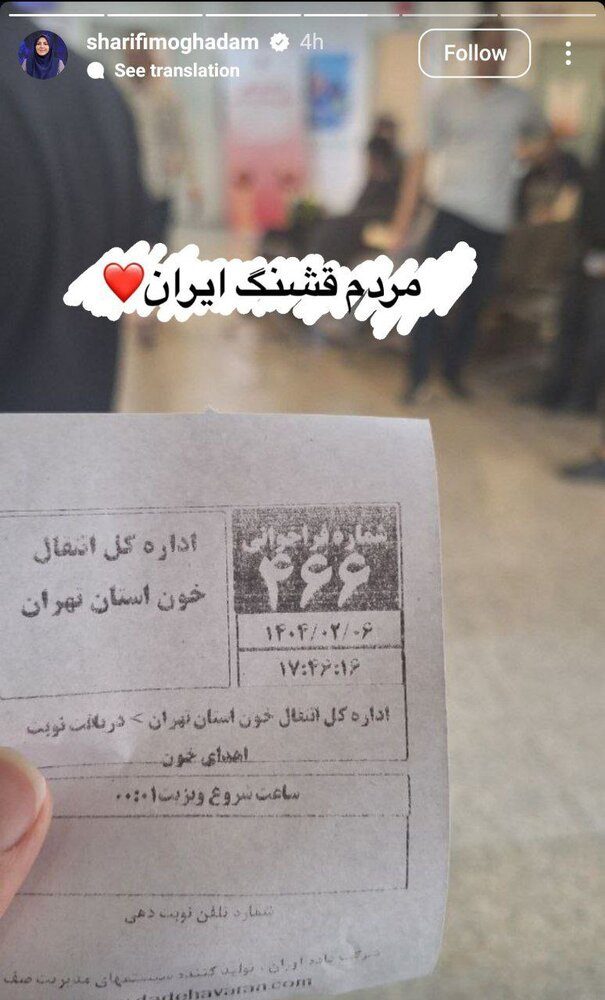 sharifimoghadam 4h
Follow
See translation
مردم قشنگ ایران❤️
اداره کل انتقال
خون استان تهران
شماره فراخوانی
۴۶۶
۱۴۰۴/۰۲/۰۶
۱۷:۴۶:۱۶
اداره کل انتقال خون استان تهران > دریافت نوبت
اهدای خون
ساعت شروع ویزیت ۰۰:۰۱
شماره تلفن نوبت دهی
تولید کننده سیستمهای مدیریت صف